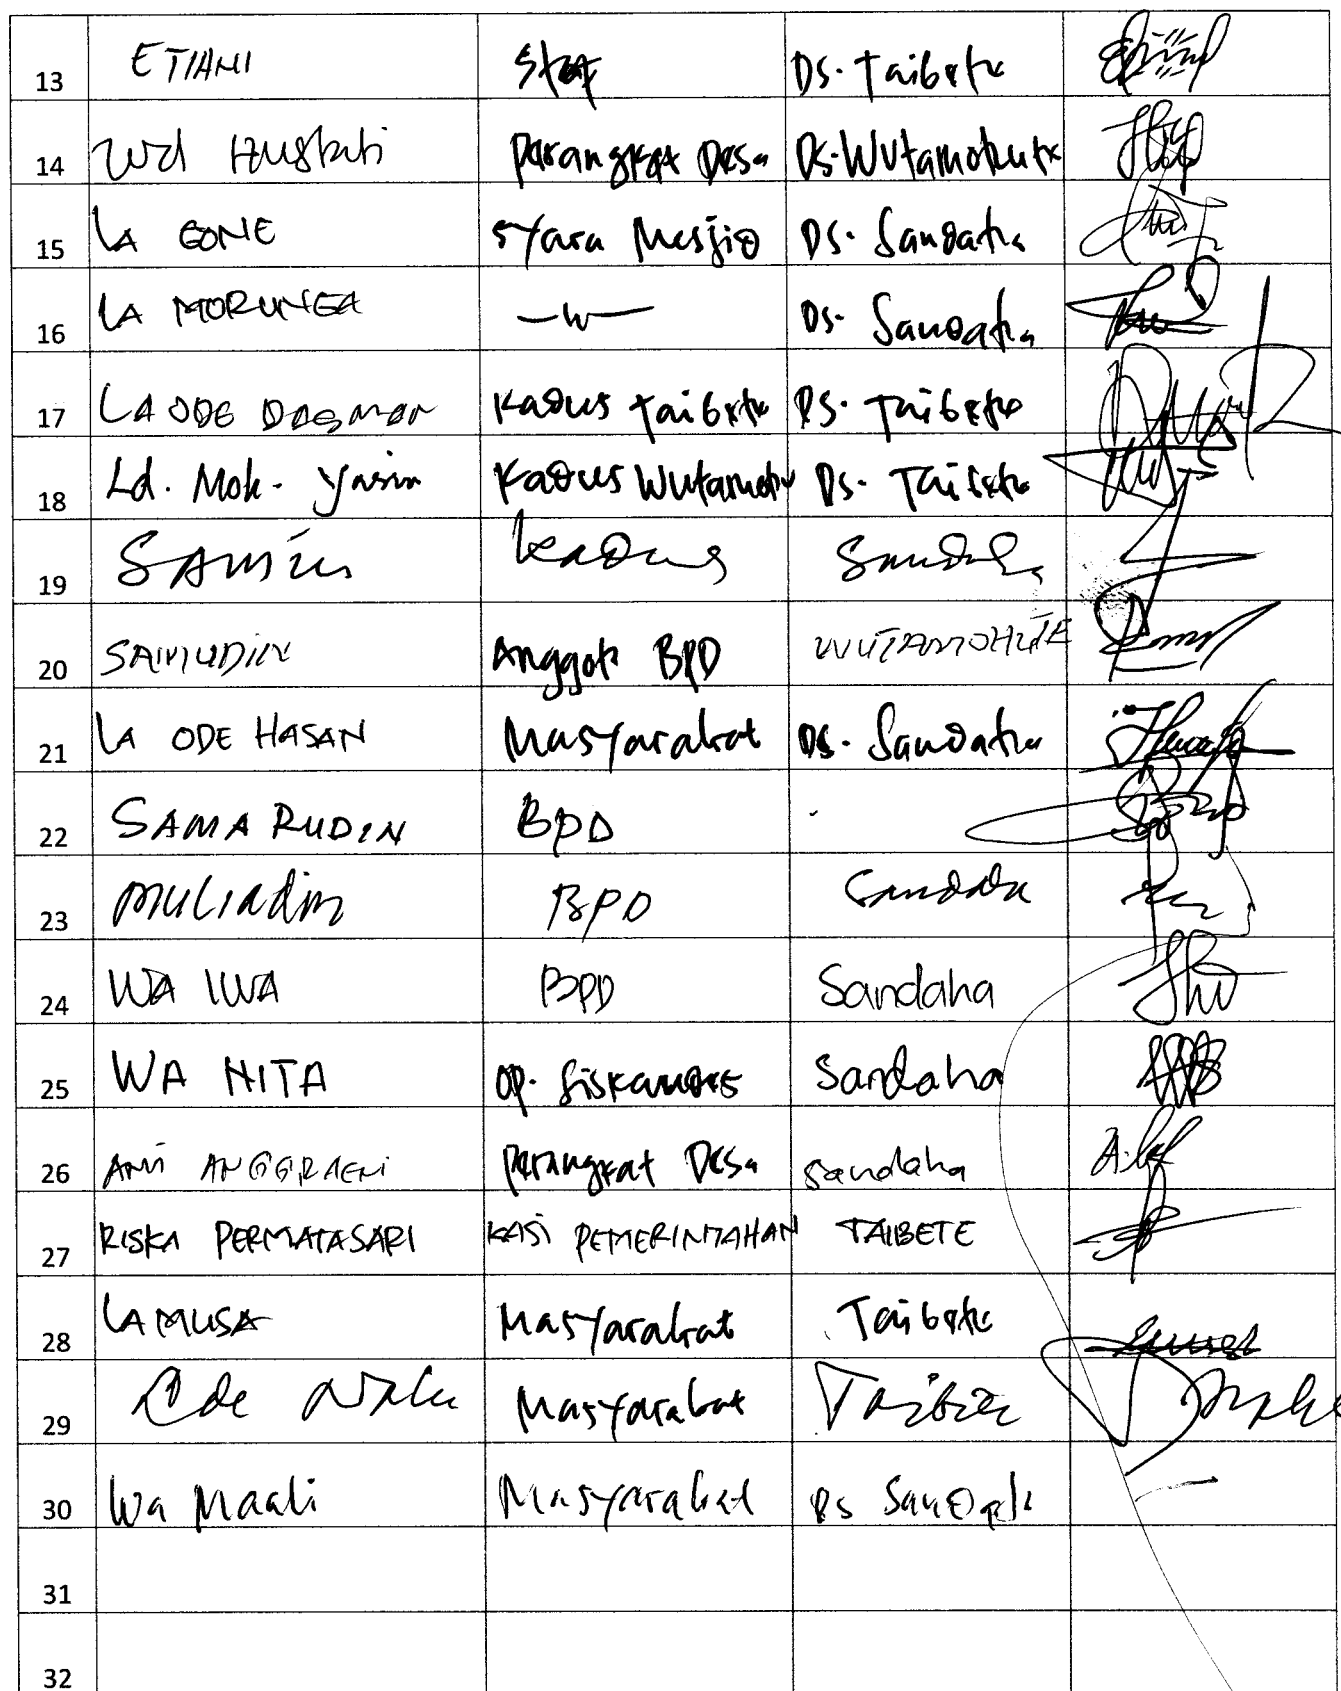 13 ETIANI Staf Ds. Taibete
14 Wd Ds. Wutamohute Perangkat Desa
15 LA GONE Syara Mesjid Ds. Sandaha
16 LA MORUNGA Ds. Sandaha
17 LA ODE Kadus Taibete Ds. Taibete
18 Ld. Moh. Yasin Kadus Ds. Taibete
19 Kadus
20 SAMUDIN Anggota BPD WUTAMOHUTE
21 LA ODE HASAN Masyarakat Ds. Sandaha
22 SAMARUDIN BPD
23 muliadin BPD Sandaha
24 WA IWA BPD Sandaha
25 WA NITA OP. Siskeudes Sandaha
26 ANI ANGGRAENI Perangkat Desa Sandaha
27 RISKA PERMATASARI KASI PEMERINTAHAN TAIBETE
28 LA MUSA Masyarakat Taibete
29 Ode Masyarakat
30 Wa Maali Masyarakat Ds Sandaha
31
32